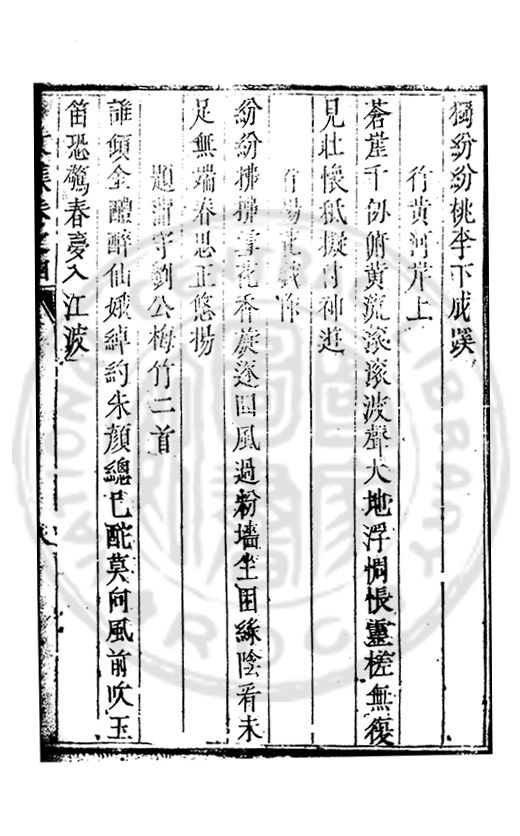 獨紛紛桃李下成蹊
行黄河岸上
蒼崖千仞俯黄流滚滚波聲大地浮惆悵靈槎無復
見壯懷秪擬付神遊
楊花戲作
紛紛拂拂雪花香旋逐回風過粉墻坐困綠陰看未
足無端春思正悠揚
題蒲守劉公梅竹二首
誰傾金醴醉仙娥綽約朱顔總已酡莫向風前吹玉
笛恐驚春夢入江波